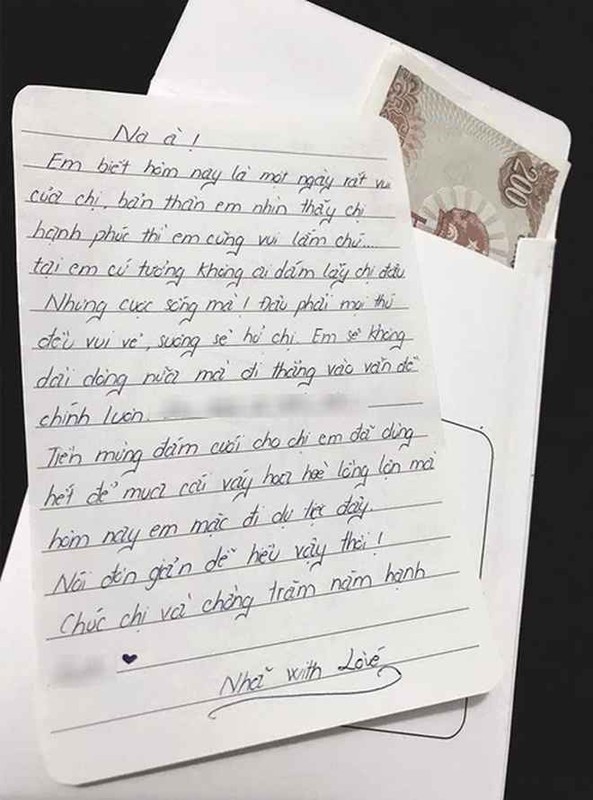 Na à!
Em biết hôm nay là một ngày rất vui
của chị, bản thân em nhìn thấy chị
hạnh phúc thì em cũng vui lắm chứ...
tại em cứ tưởng không ai dám lấy chị đâu
Nhưng cuộc sống mà! Đâu phải mọi thứ
đều vui vẻ, sướng sẽ hả chị. Em sẽ không
dài dòng nữa mà đi thẳng vào vấn đề
chính luôn.
Tiền mừng đám cưới cho chị em đã dùng
hết để mua cái váy hoa hoè lồng lộn mà
hôm nay em mặc đi dự tiệc đây.
Nói đơn giản dễ hểu vậy thôi!
Chúc chị và chồng trăm năm hạnh
Nhã with Love
200